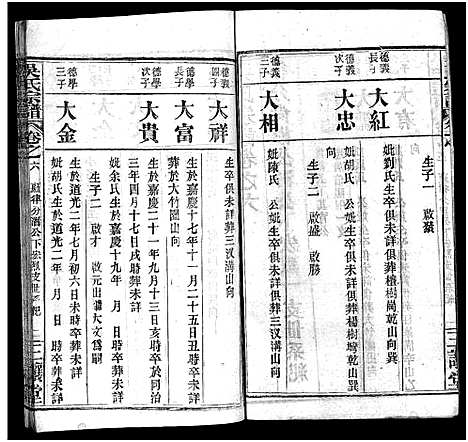 德義
長子
大紅
妣劉氏生卒俱未詳俱葬檀樹崗乾山向巽
生子一 啟猿
德義
次子
大忠
妣胡氏 公妣生卒俱未詳俱葬楊樹塆乾山巽向
生子二 啟盛 啟勝
大相
妣陳氏 公妣生卒俱未詳俱葬三汊溝山向
德義
四子
大祥
生卒俱未詳葬三汊溝山向
德學
長子
大富
生於嘉慶十七年十一月二十五日丑時卒未詳
葬於大竹園山向
德學
次子
大貴
生於嘉慶十二年九月十三日亥時卒於同治
三年四月十七日戌時葬未詳
妣余氏生於嘉慶十九年 月 日 時卒葬未詳
生子二 啟才 啟元出繼大文為嗣
德學
三子
大金
生於道光二年七月初六日未時卒葬未詳
妣胡氏生於道光二年 月 日 時卒葬未詳
吳氏宗譜
卷之六